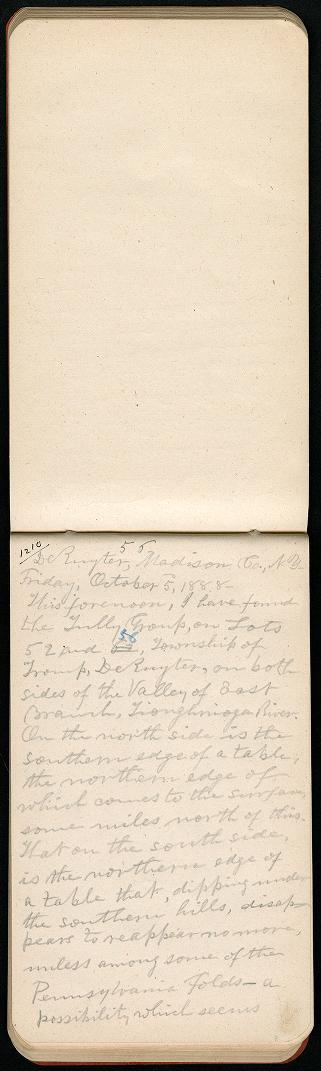 1210
56
DeRuyter, Madison Co., N.Y.
Friday, October 5, 1888–
This forenoon, I have found
the Tully Group, on Lots
56
52 and, Township of
Tromp, DeRuyter, on both
sides of the Valley of East
Branch, Tioughnioga River.
On the north side is the
southern edge of a table,
the northern edge of
which comes to the surface,
some miles north of this.
That on the south side,
is the northern edge of
a table that, dipping under
the southern hills, disap-
pears to reappear no more,
unless among some of the
Pennsylvania Folds – a
possibility which seems